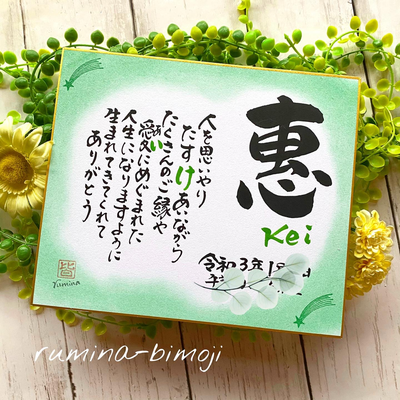 惠
Kei
人を思いやり
たすけあいながら
たくさんのご縁や
愛にめぐまれた
人生になりますように
生まれてきてくれて
ありがとう
令和3年1
皆
rumina
rumina-bimoji